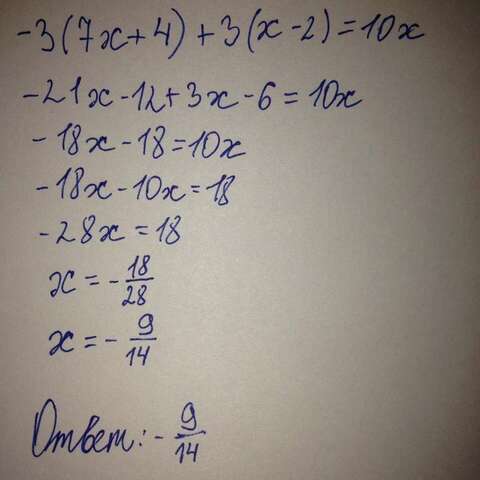 -3(7x+4)+3(x-2)=10x
-21x-12+3x-6=10x
-18x-18=10x
-18x-10x=18
-28x=18
x=-18/28
x=-9/14
Ответ: -9/14